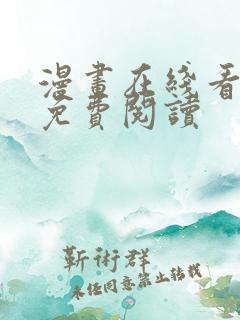 漫畫在綫看
免費閱讀
靳術群
未経同意禁止轉載